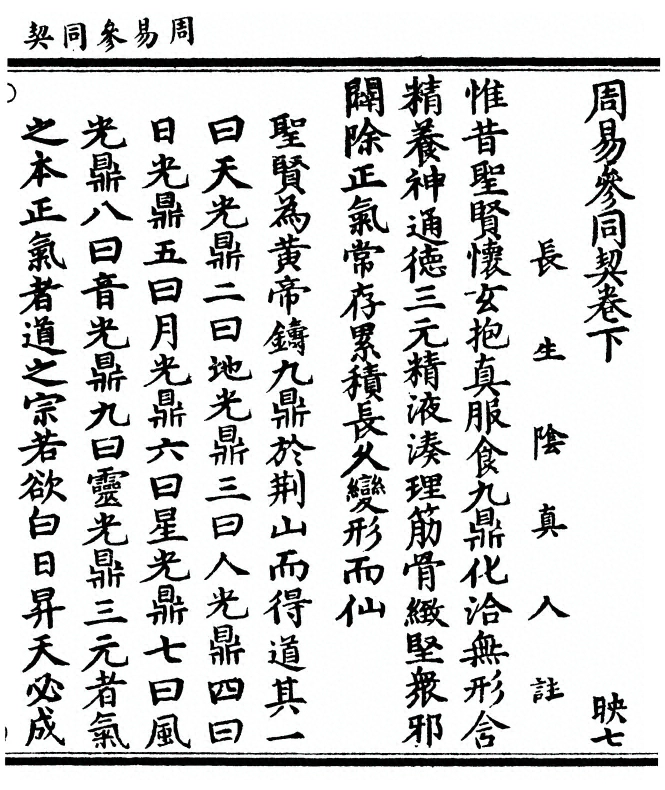 周易參同契
周易參同契卷下　映七
長生陰真人註
惟昔聖賢懷玄抱真服食九鼎化洽無形含
精養神通德三元精液湊理筋骨緻堅衆邪
闢除正氣常存累積長久變形而仙
聖賢為黄帝鑄九鼎於荆山而得道其一
曰天光鼎二曰地光鼎三曰人光鼎四曰
日光鼎五曰月光鼎六曰星光鼎七曰風
光鼎八曰音光鼎九曰靈光鼎三元者氣
之本正氣者道之宗若欲白日昇天必成